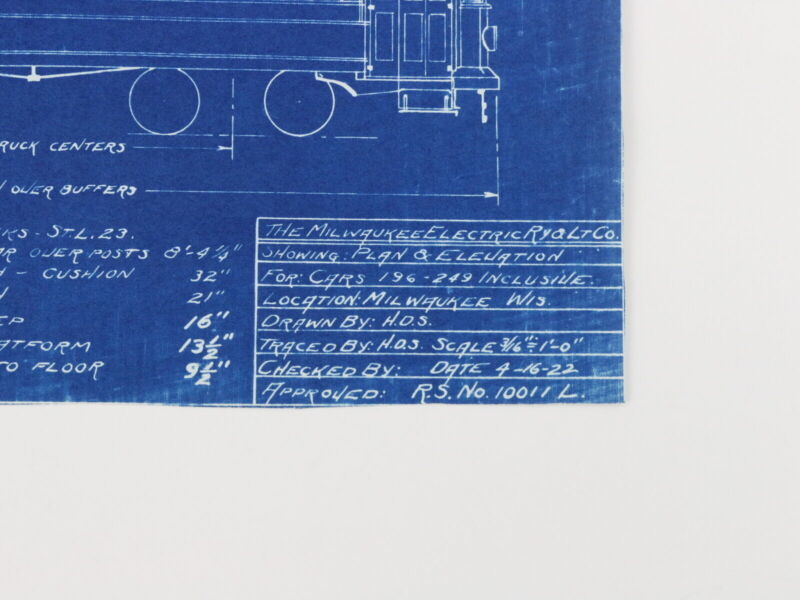 TRUCK CENTERS
OVER BUFFERS
ST.L.23.
OVER POSTS 8'-4¼"
- CUSHION 32"
21"
16"
13½"
TO FLOOR 9½"
THE MILWAUKEE ELECTRIC RY & LT CO.
SHOWING: PLAN & ELEVATION
FOR: CARS 196-249 INCLUSIVE.
LOCATION: MILWAUKEE WIS.
DRAWN BY: H.D.S.
TRACED BY: H.D.S. SCALE 3/16" = 1'-0"
CHECKED BY: DATE 4-16-22
APPROVED: R.S. NO. 10011 L.